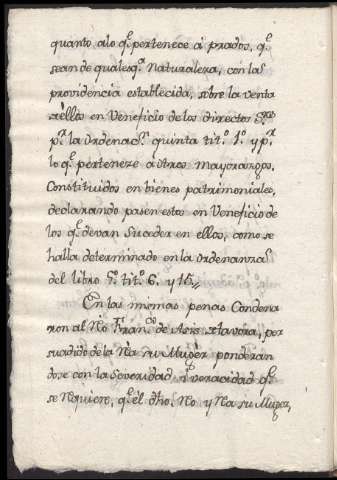 quanto alo q.e pertenece á prados, q.e
sean de qualesq.a Naturaleza, con las
providencia establecida, sobre la venta
dellos en Veneficio de los directos S.res
p.r la Ordenac.n quinta tit.o 1.o y p.r
lo q.e pertenece á otros Mayorazgos,
Constituidos en bienes patrimoniales,
declarando pasen estos en Veneficio de
los q.e devan Suceder en ellos, como se
halla determinado en la Ordenanza
del libro tit.o 6. y 15.
En las mismas penas Condena
ron al Rèo Fran.co de Asis per
suadido de la Rèa su Muger ponderan
dose con la Severidad, voracidad q.e
se Requiere, q.e el dho. Rèo y Rèa su Muger,